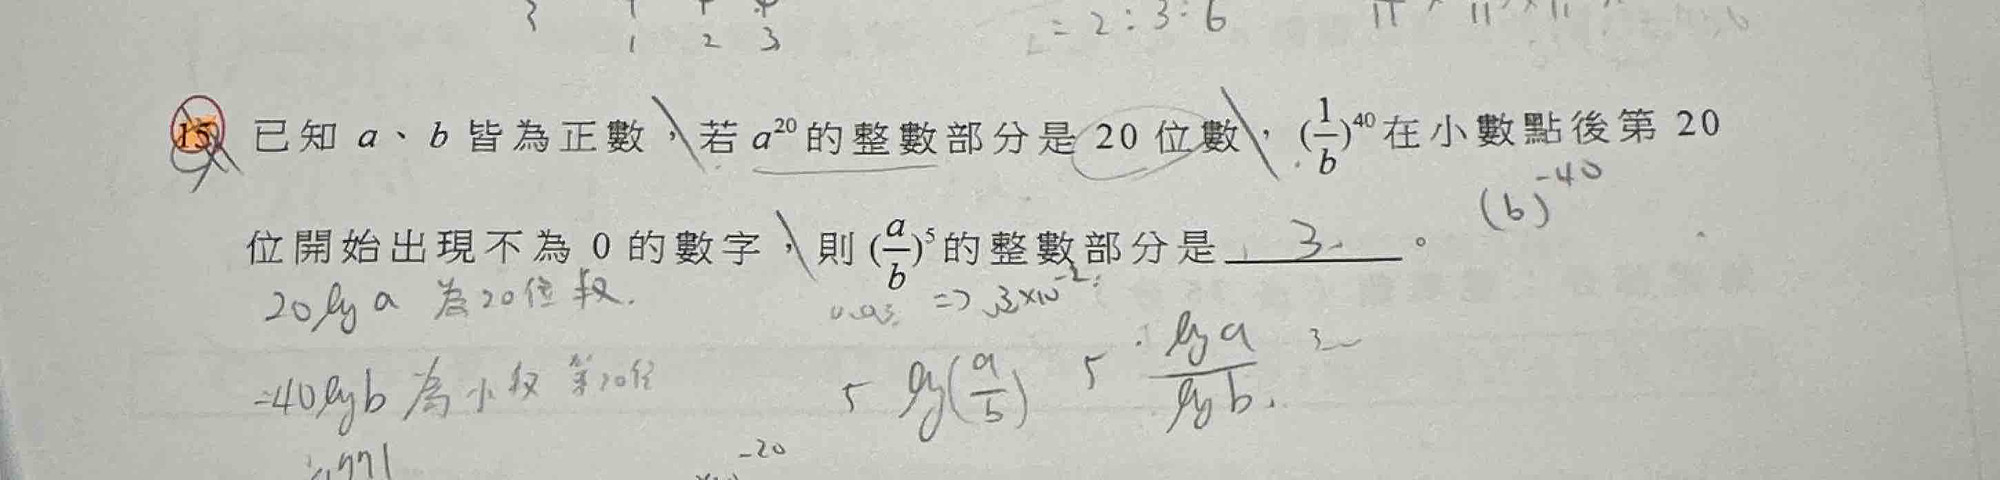 1 2 3
= 2 : 3 : 6
11 11 11
15 已知 a、b 皆為正數，若 a²⁰ 的整數部分是 20 位數，(1/b)⁴⁰ 在小數點後第 20
(b)⁻⁴⁰
位開始出現不為 0 的數字，則 (a/b)⁵ 的整數部分是 3 。
20 log a 為 20 位數.
=> 3×10⁻²
-40 log b 為小數 第20位
5 log(a/b) 5 log a / log b
⁻²⁰